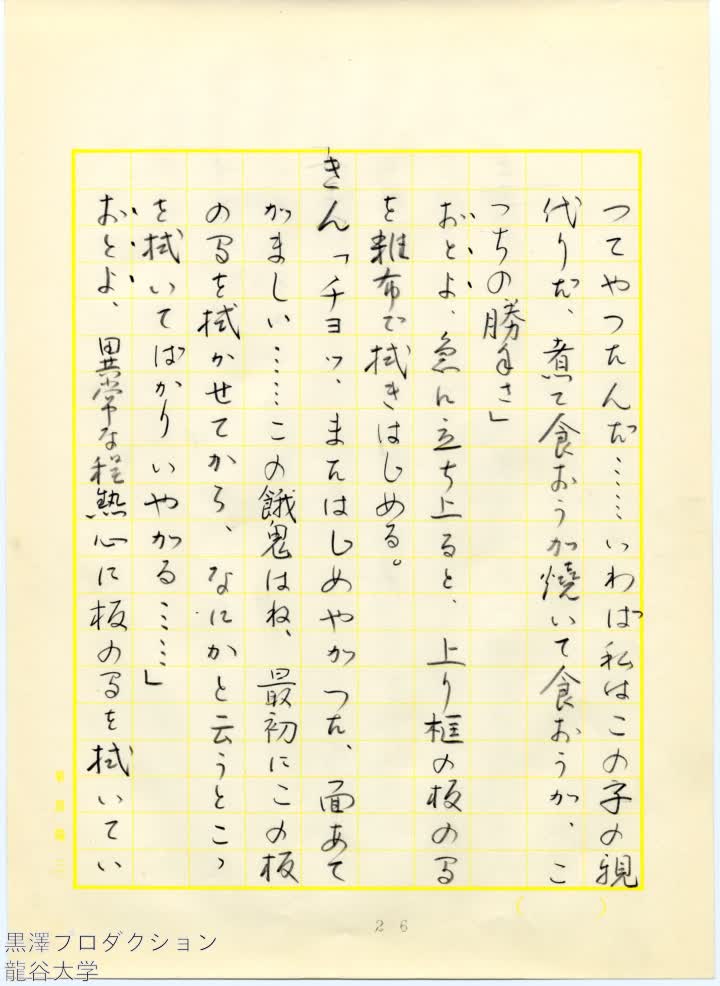 つてやつたんだ……いわば私はこの子の親
代りだ、煮て食おうが焼いて食おうが、こ
っちの勝手さ」
おとよ、急に立ち上ると、上り框の板の間
を雑布で拭きはじめる。
きん「チョッ、またはじめやがつた、面あて
がましい……この餓鬼はね、最初にこの板
の間を拭かせてから、なにかと云うとこゝ
を拭いてばかりいやがる……」
おとよ、異常な程熱心に板の間を拭いてい
26
黒澤プロダクション
龍谷大学